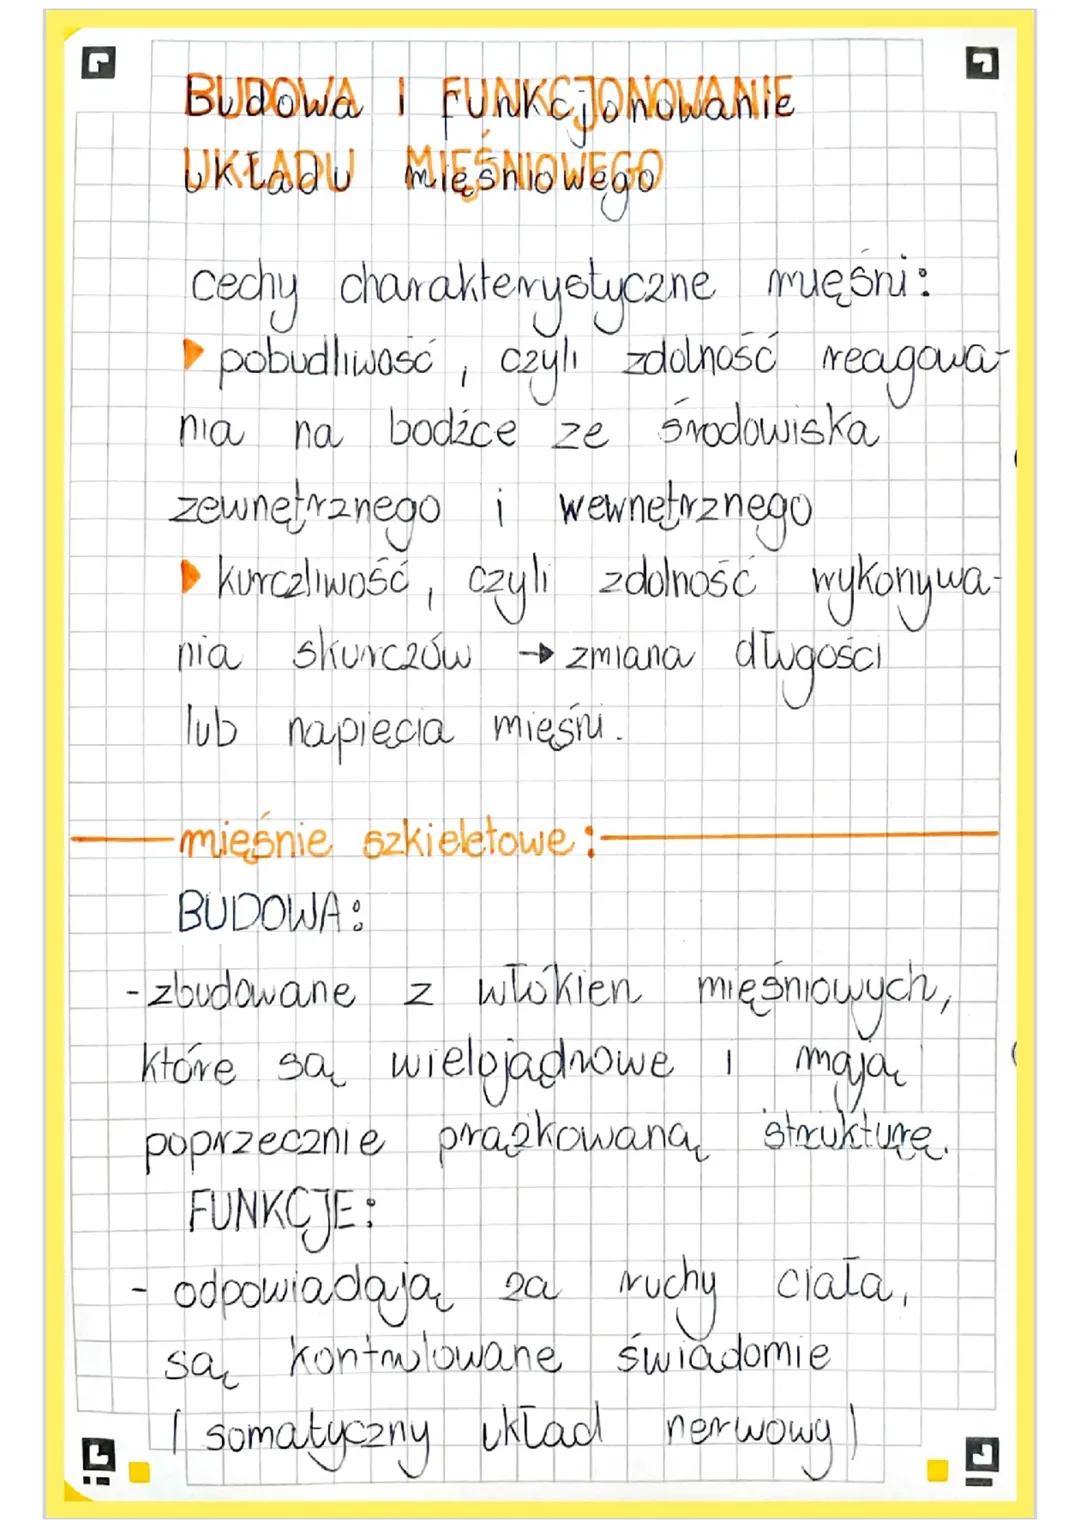 BUDOWA I FUNKCJONOWANIE
UKŁADU MIĘŚNIOWEGO
cechy charakterystyczne mięśni:
pobudliwość, czyli zdolność reagowa-
nia na bodźce ze środowiska
zewnętrznego i wewnętrznego
kurczliwość, czyli zdolność wykonywa-
nia skurczów → zmiana długości
lub napięcia mięśni.
mięśnie szkieletowe:
BUDOWA:
- zbudowane z włókien mięśniowych,
które są wielojądrowe i mają
poprzecznie prążkowaną strukturę.
FUNKCJE:
- odpowiadają za ruchy ciała,
są kontrolowane świadomie
(somatyczny układ nerwowy)